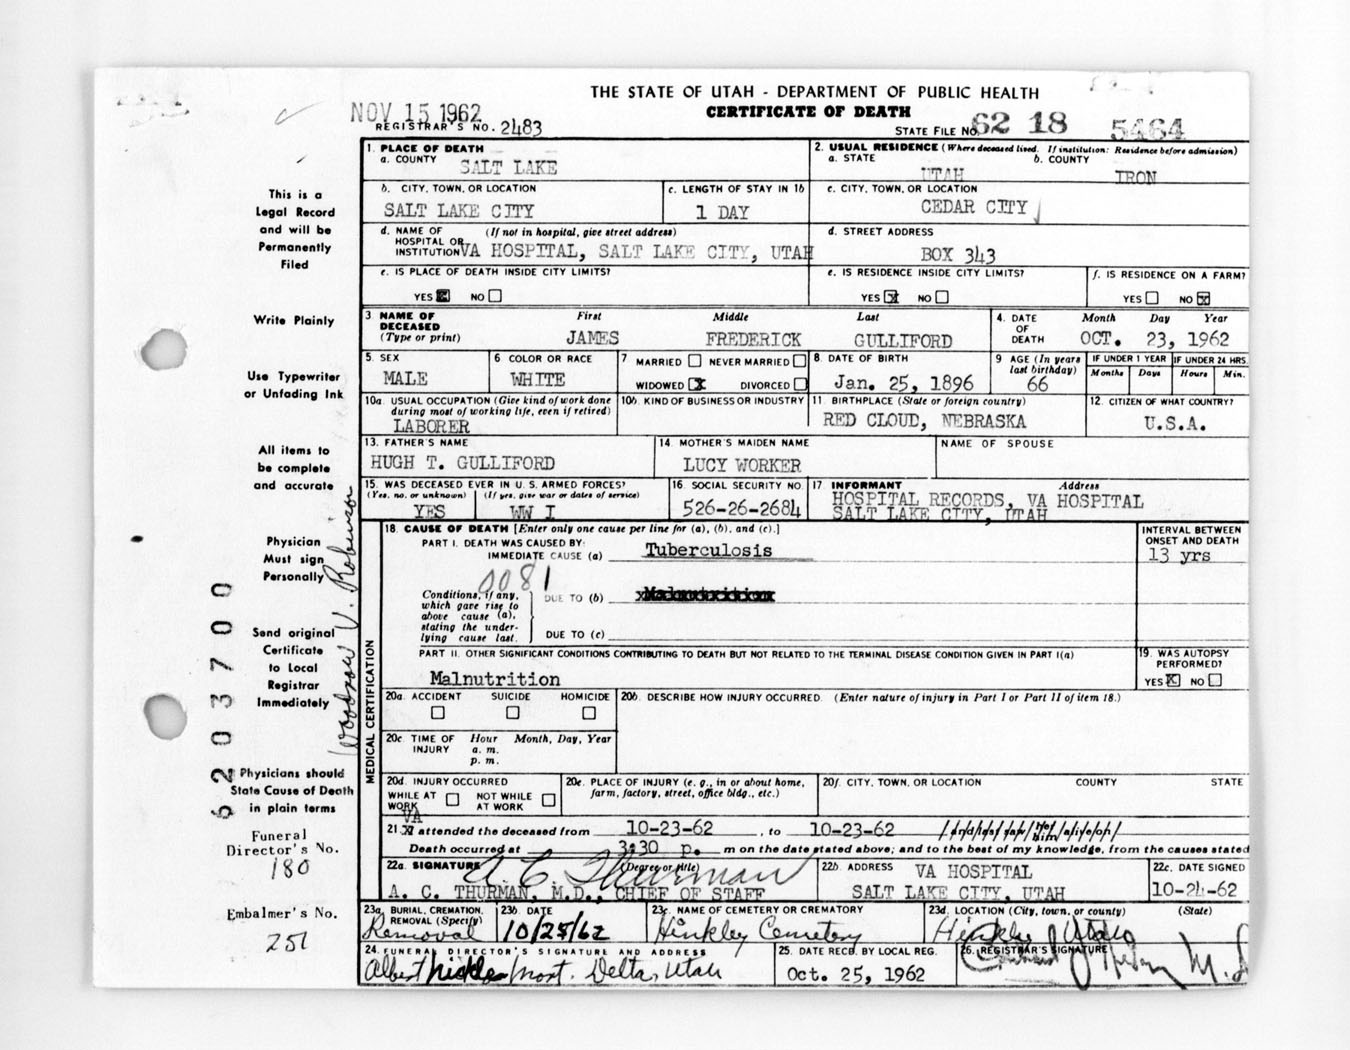 THE STATE OF UTAH - DEPARTMENT OF PUBLIC HEALTH
CERTIFICATE OF DEATH
NOV 15 1962
REGISTRAR'S NO. 2483
STATE FILE NO. 62 18 5464
1. PLACE OF DEATH
a. COUNTY
SALT LAKE
2. USUAL RESIDENCE (Where deceased lived. If institution: Residence before admission)
a. STATE b. COUNTY
UTAH IRON
b. CITY, TOWN, OR LOCATION
SALT LAKE CITY
c. LENGTH OF STAY IN 1b
1 DAY
c. CITY, TOWN, OR LOCATION
CEDAR CITY
d. NAME OF HOSPITAL OR INSTITUTION (If not in hospital, give street address)
VA HOSPITAL, SALT LAKE CITY, UTAH
d. STREET ADDRESS
BOX 343
e. IS PLACE OF DEATH INSIDE CITY LIMITS?
YES NO
e. IS RESIDENCE INSIDE CITY LIMITS?
YES X NO
f. IS RESIDENCE ON A FARM?
YES NO X
3. NAME OF DECEASED (Type or print)
First Middle Last
JAMES FREDERICK GULLIFORD
4. DATE OF DEATH
Month Day Year
OCT. 23, 1962
5. SEX
MALE
6 COLOR OR RACE
WHITE
7 MARRIED NEVER MARRIED
WIDOWED X DIVORCED
8. DATE OF BIRTH
Jan. 25, 1896
9 AGE (In years last birthday)
66
IF UNDER 1 YEAR IF UNDER 24 HRS.
Months Days Hours Min.
10a. USUAL OCCUPATION (Give kind of work done during most of working life, even if retired)
LABORER
10b. KIND OF BUSINESS OR INDUSTRY
11 BIRTHPLACE (State or foreign country)
RED CLOUD, NEBRASKA
12. CITIZEN OF WHAT COUNTRY?
U.S.A.
13. FATHER'S NAME
HUGH T. GULLIFORD
14. MOTHER'S MAIDEN NAME
LUCY WORKER
NAME OF SPOUSE
15. WAS DECEASED EVER IN U. S. ARMED FORCES?
(Yes, no, or unknown) (If yes, give war or dates of service)
YES WW I
16. SOCIAL SECURITY NO.
526-26-2684
17 INFORMANT Address
HOSPITAL RECORDS, VA HOSPITAL
SALT LAKE CITY, UTAH
18. CAUSE OF DEATH [Enter only one cause per line for (a), (b), and (c).]
PART I. DEATH WAS CAUSED BY:
IMMEDIATE CAUSE (a) Tuberculosis
INTERVAL BETWEEN ONSET AND DEATH
13 yrs
0081
Conditions, if any, which gave rise to above cause (a), stating the underlying cause last.
DUE TO (b) Malnutrition
DUE TO (c)
PART II. OTHER SIGNIFICANT CONDITIONS CONTRIBUTING TO DEATH BUT NOT RELATED TO THE TERMINAL DISEASE CONDITION GIVEN IN PART I(a)
Malnutrition
19. WAS AUTOPSY PERFORMED?
YES X NO
20a. ACCIDENT SUICIDE HOMICIDE
20b. DESCRIBE HOW INJURY OCCURRED. (Enter nature of injury in Part I or Part II of item 18.)
20c. TIME OF INJURY Hour Month, Day, Year
a. m.
p. m.
20d. INJURY OCCURRED
WHILE AT WORK NOT WHILE AT WORK
20e. PLACE OF INJURY (e. g., in or about home, farm, factory, street, office bldg., etc.)
20f. CITY, TOWN, OR LOCATION COUNTY STATE
MEDICAL CERTIFICATION
VA
21. attended the deceased from 10-23-62, to 10-23-62
Death occurred at 3:30 p. m on the date stated above; and to the best of my knowledge, from the causes stated
22a. SIGNATURE (Degree or title)
A C Thurman
A. C. THURMAN, M.D., CHIEF OF STAFF
22b. ADDRESS VA HOSPITAL
SALT LAKE CITY, UTAH
22c. DATE SIGNED
10-24-62
23a. BURIAL, CREMATION, REMOVAL (Specify)
Removal
23b. DATE
10/25/62
23c. NAME OF CEMETERY OR CREMATORY
Hinkley Cemetery
23d. LOCATION (City, town, or county) (State)
Hinkley Utah
24. FUNERAL DIRECTOR'S SIGNATURE AND ADDRESS
Albert Nickle Mort. Delta, Utah
25. DATE RECD. BY LOCAL REG.
Oct. 25, 1962
26. REGISTRAR'S SIGNATURE
This is a
Legal Record
and will be
Permanently
Filed
Write Plainly
Use Typewriter
or Unfading Ink
All items to
be complete
and accurate
Physician
Must sign
Personally
Send original
Certificate
to Local
Registrar
Immediately
Physicians should
State Cause of Death
in plain terms
Funeral
Director's No.
180
Embalmer's No.
251
6203700
Woodrow V. Robinson